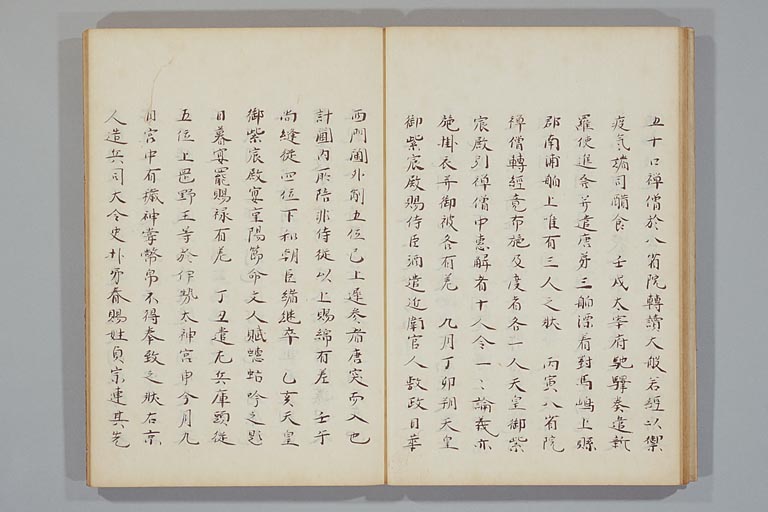 五十口禪僧於八省院轉讀大般若經以禦
疫氣端司醋食 壬戌太宰府馳驛奏遣新
羅使進舍并遣唐第三舶漂着對馬嶋上縣
郡南浦舶上唯有三人之狀 丙寅八省院
禪僧轉經竟布施及度者各一人天皇御紫
宸殿引禪僧中惠解者十人令一〻論義亦
施掛衣并御被各有差 九月丁卯朔天皇
御紫宸殿賜侍臣酒遣近衛官人數政目華
西門蘭外削五位已上遲參者唐突而入也
計圃內所陪非侍從以上賜綿有差 壬午
尚縫從四位下和朝臣緒繼卒 乙亥天皇
御紫宸殿宴重陽節命文人賦蟋蛄吟之題
日暮宴罷賜祿有差 丁丑遣左兵庫頭從
五位上岡野王等於伊勢太神宮申今月九
日宮中有穢神嘗幣帛不得奉致之狀右京
人造兵司大令史朴弟春賜姓貞宗連其先